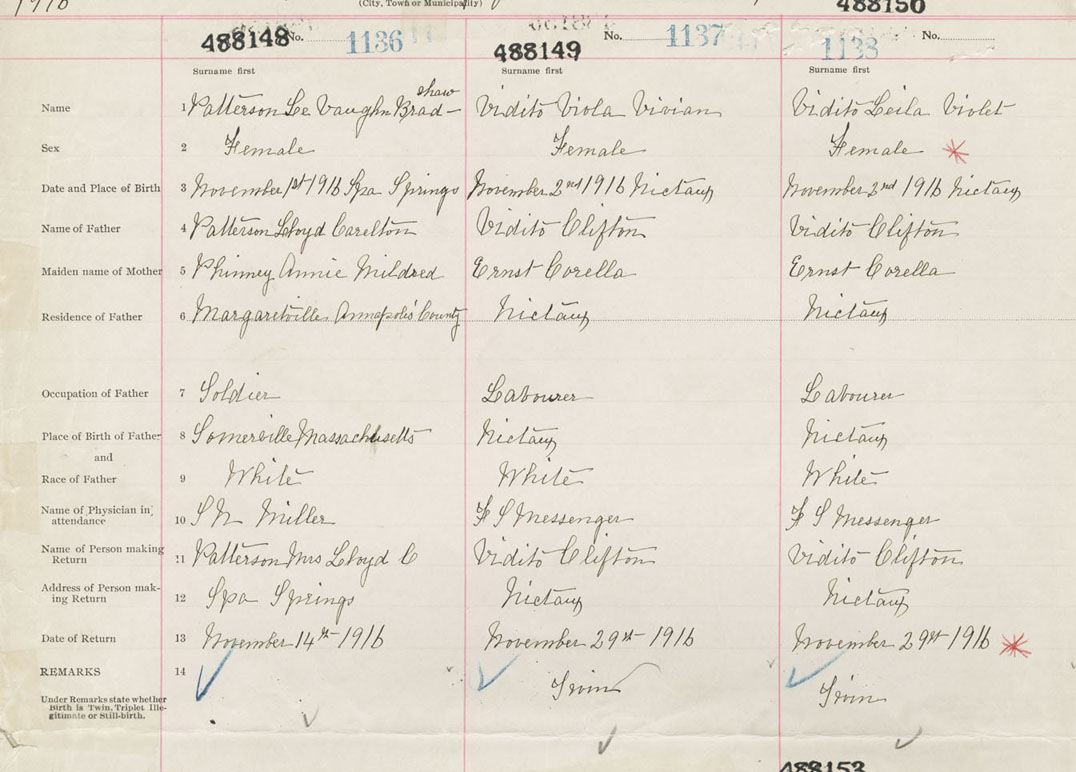 1916
(City, Town or Municipality)
488150
488148 No. 1136
488149 No. 1137
1138 No.
Surname first Surname first Surname first
shaw
Name 1 Patterson Le Vaughn Brad- Vidito Viola Vivian Vidito Leila Violet
Sex 2 Female Female Female
Date and Place of Birth 3 November 1st 1916 Spa Springs November 2nd 1916 Nictaux November 2nd 1916 Nictaux
Name of Father 4 Patterson Lloyd Carelton Vidito Clifton Vidito Clifton
Maiden name of Mother 5 Phinney Annie Mildred Ernst Corella Ernst Corella
Residence of Father 6 Margaretville Annapolis County Nictaux Nictaux
Occupation of Father 7 Soldier Labourer Labourer
Place of Birth of Father 8 Somerville Massachusetts Nictaux Nictaux
and
Race of Father 9 White White White
Name of Physician in attendance 10 S N Miller F S Messenger F S Messenger
Name of Person making Return 11 Patterson Mrs Lloyd C Vidito Clifton Vidito Clifton
Address of Person mak-ing Return 12 Spa Springs Nictaux Nictaux
Date of Return 13 November 14th 1916 November 29th 1916 November 29th 1916
REMARKS 14 Twin Twin
Under Remarks state whether
Birth is Twin, Triplet Ille-
gitimate or Still-birth.
488153